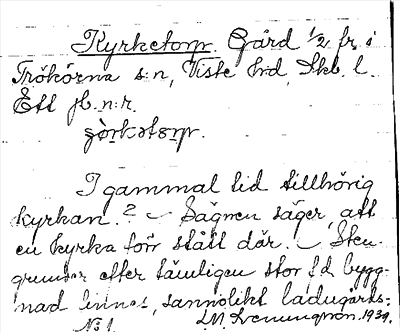 Kyrketorp. Gård 1/2 fr. i
Trökörna s:n, Viste hrd, Skb. l.
Ett jb. n:r.
I gammal tid tillhörig
kyrkan.? – Sägnen säger, att
en kyrka förr stått där. – Sten-
grunder efter tämligen stor f.d. bygg-
nad finnes, sannolikt ladugårds-
No 1. 1939.